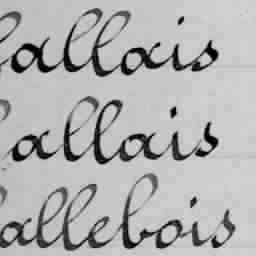 allais
allais
allebois